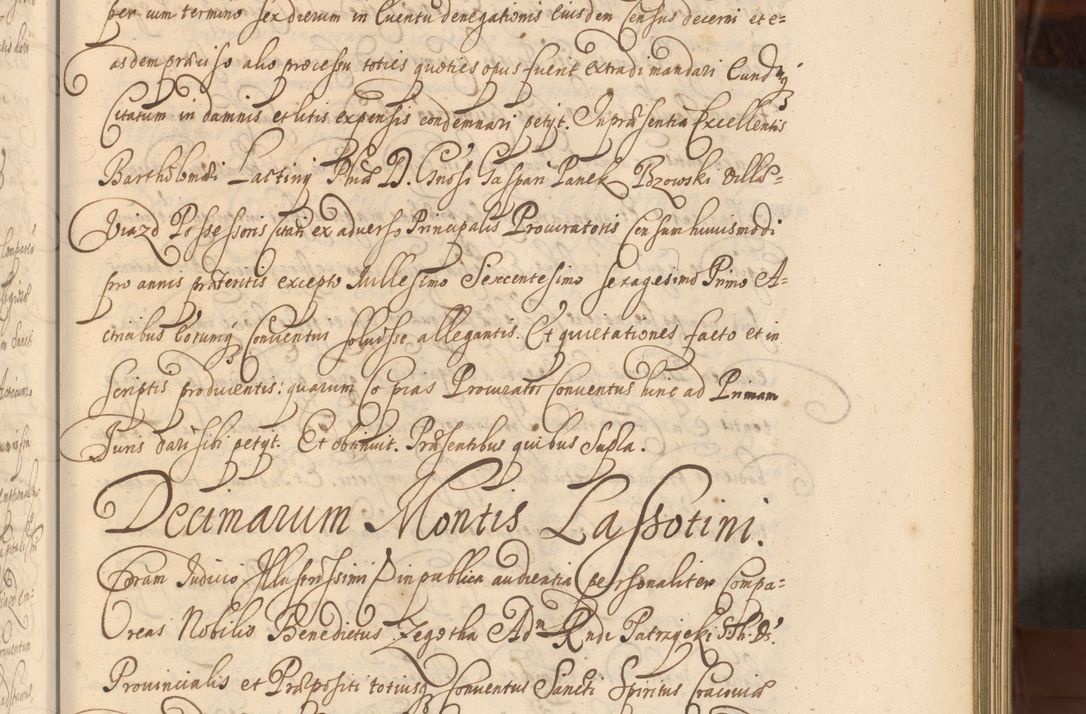 per cum termino sex dierum in Euentu denegationis Eiusdem Census decerni et e-
asdem præciso alio processu toties quoties opus fuerit extradi mandari Eundemq
Citatum in damnis et litis expensis condemnari petyt. In præsentia Excellentis
Bartholomæi Lactinij Phiæ D. Gnosi Gaspari Panek Brzowski Villæ
Viazd Possessoris Citati ex aduerso Principalis Procuratoris Censum huiusmodi
pro annis præteritis excepto Millesimo Sexcentesimo sexagesimo Primo A-
ctricibus eorumq Conuentui soluisse allegantis. Et quietationes facto et in
scriptis producentis: quarum Copias Procurator Conuentus hinc ad Primam
Juris dari sibi petyt. Et obtinuit. Præsentibus quibus Supla.
Decimarum Montis Lassotini.
Coram Judicio Illustrissimi D in publica audientia personaliter Compa-
rens Nobilis Benedictus Zegotha Adm Rndi Patrzycki Sth. D.
Prouincialis et Præpositi totiusq Conuentus Sancti Spiritus Cracouiæ